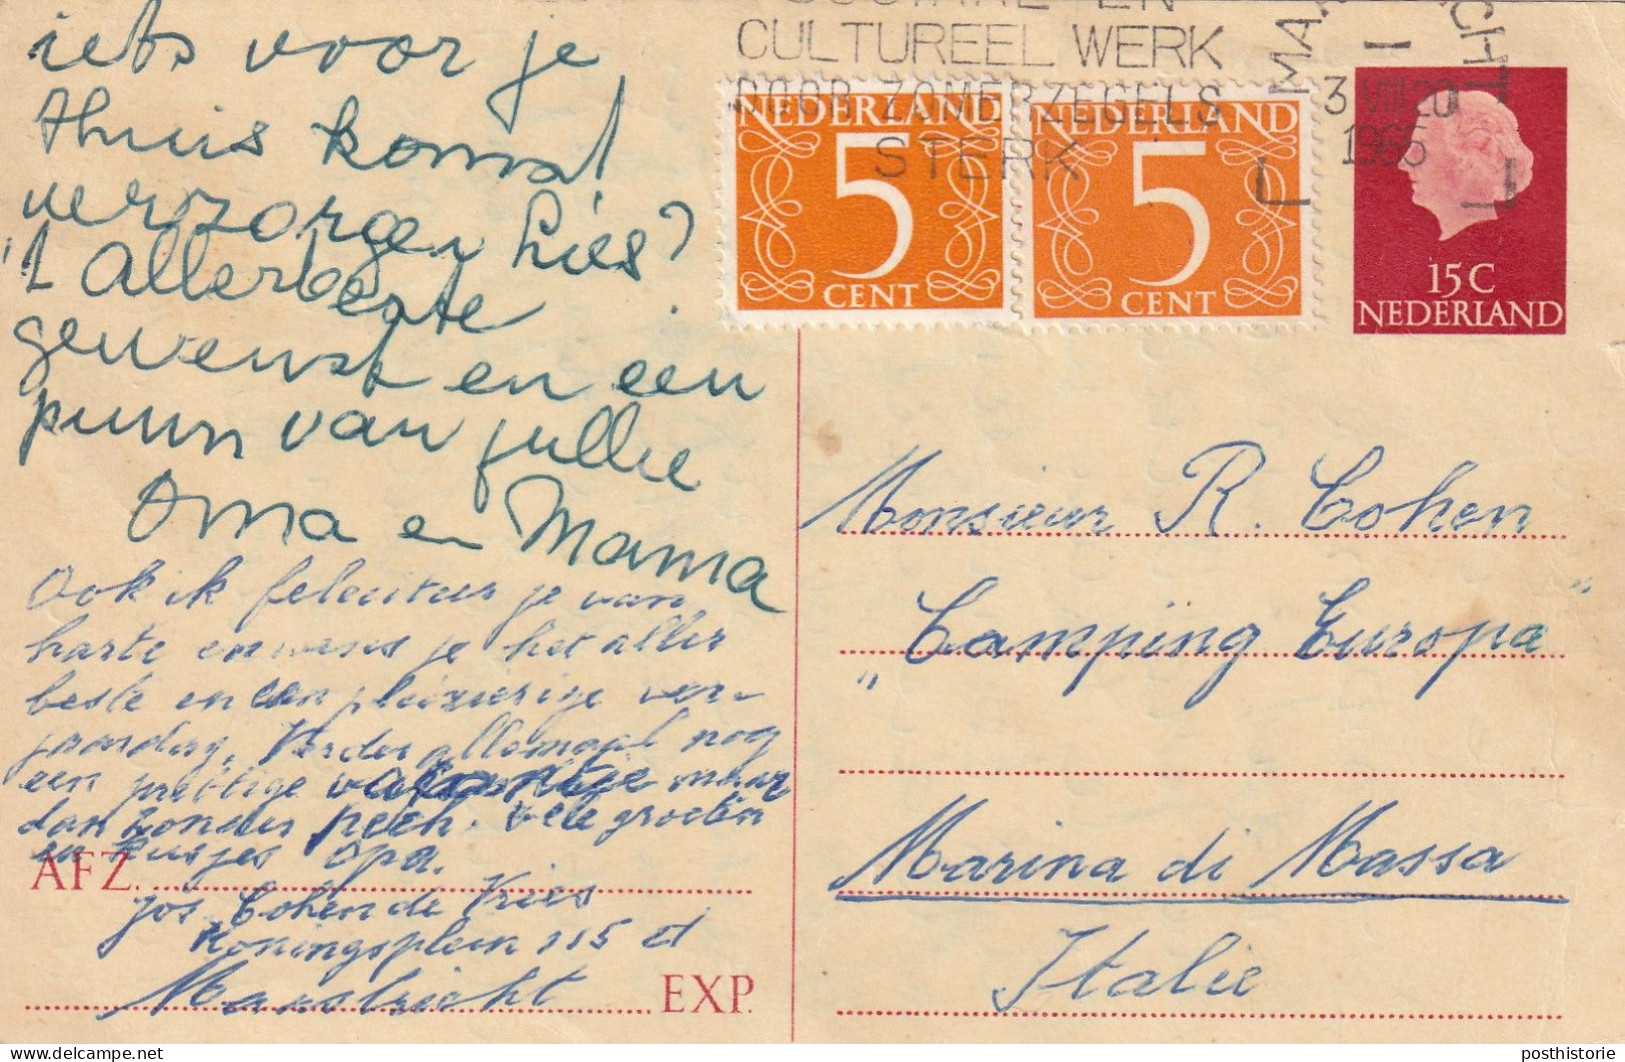 iets voor je
thuis komst
verzorgen Lies?
't Allerbeste
gewenst en een
puun van jullie
Oma en Mama
Ook ik feliciteer je van
harte en wens je het aller
beste en een pleizierige ver-
jaardag. Verder allemaal nog
een prettige vakantie maar
dan zonder pech. Vele groeten
en kusjes Opa.
AFZ.
Jos Cohen de Vries
Koningsplein 115 d
Maastricht
EXP.
CULTUREEL WERK
DOOR ZOMERZEGELS
STERK
3 VIII 20
1965
NEDERLAND
5
CENT
NEDERLAND
5
CENT
15 C
NEDERLAND
Monsieur R. Cohen
"Camping Europa"
Marina di Massa
Italie
posthistorie